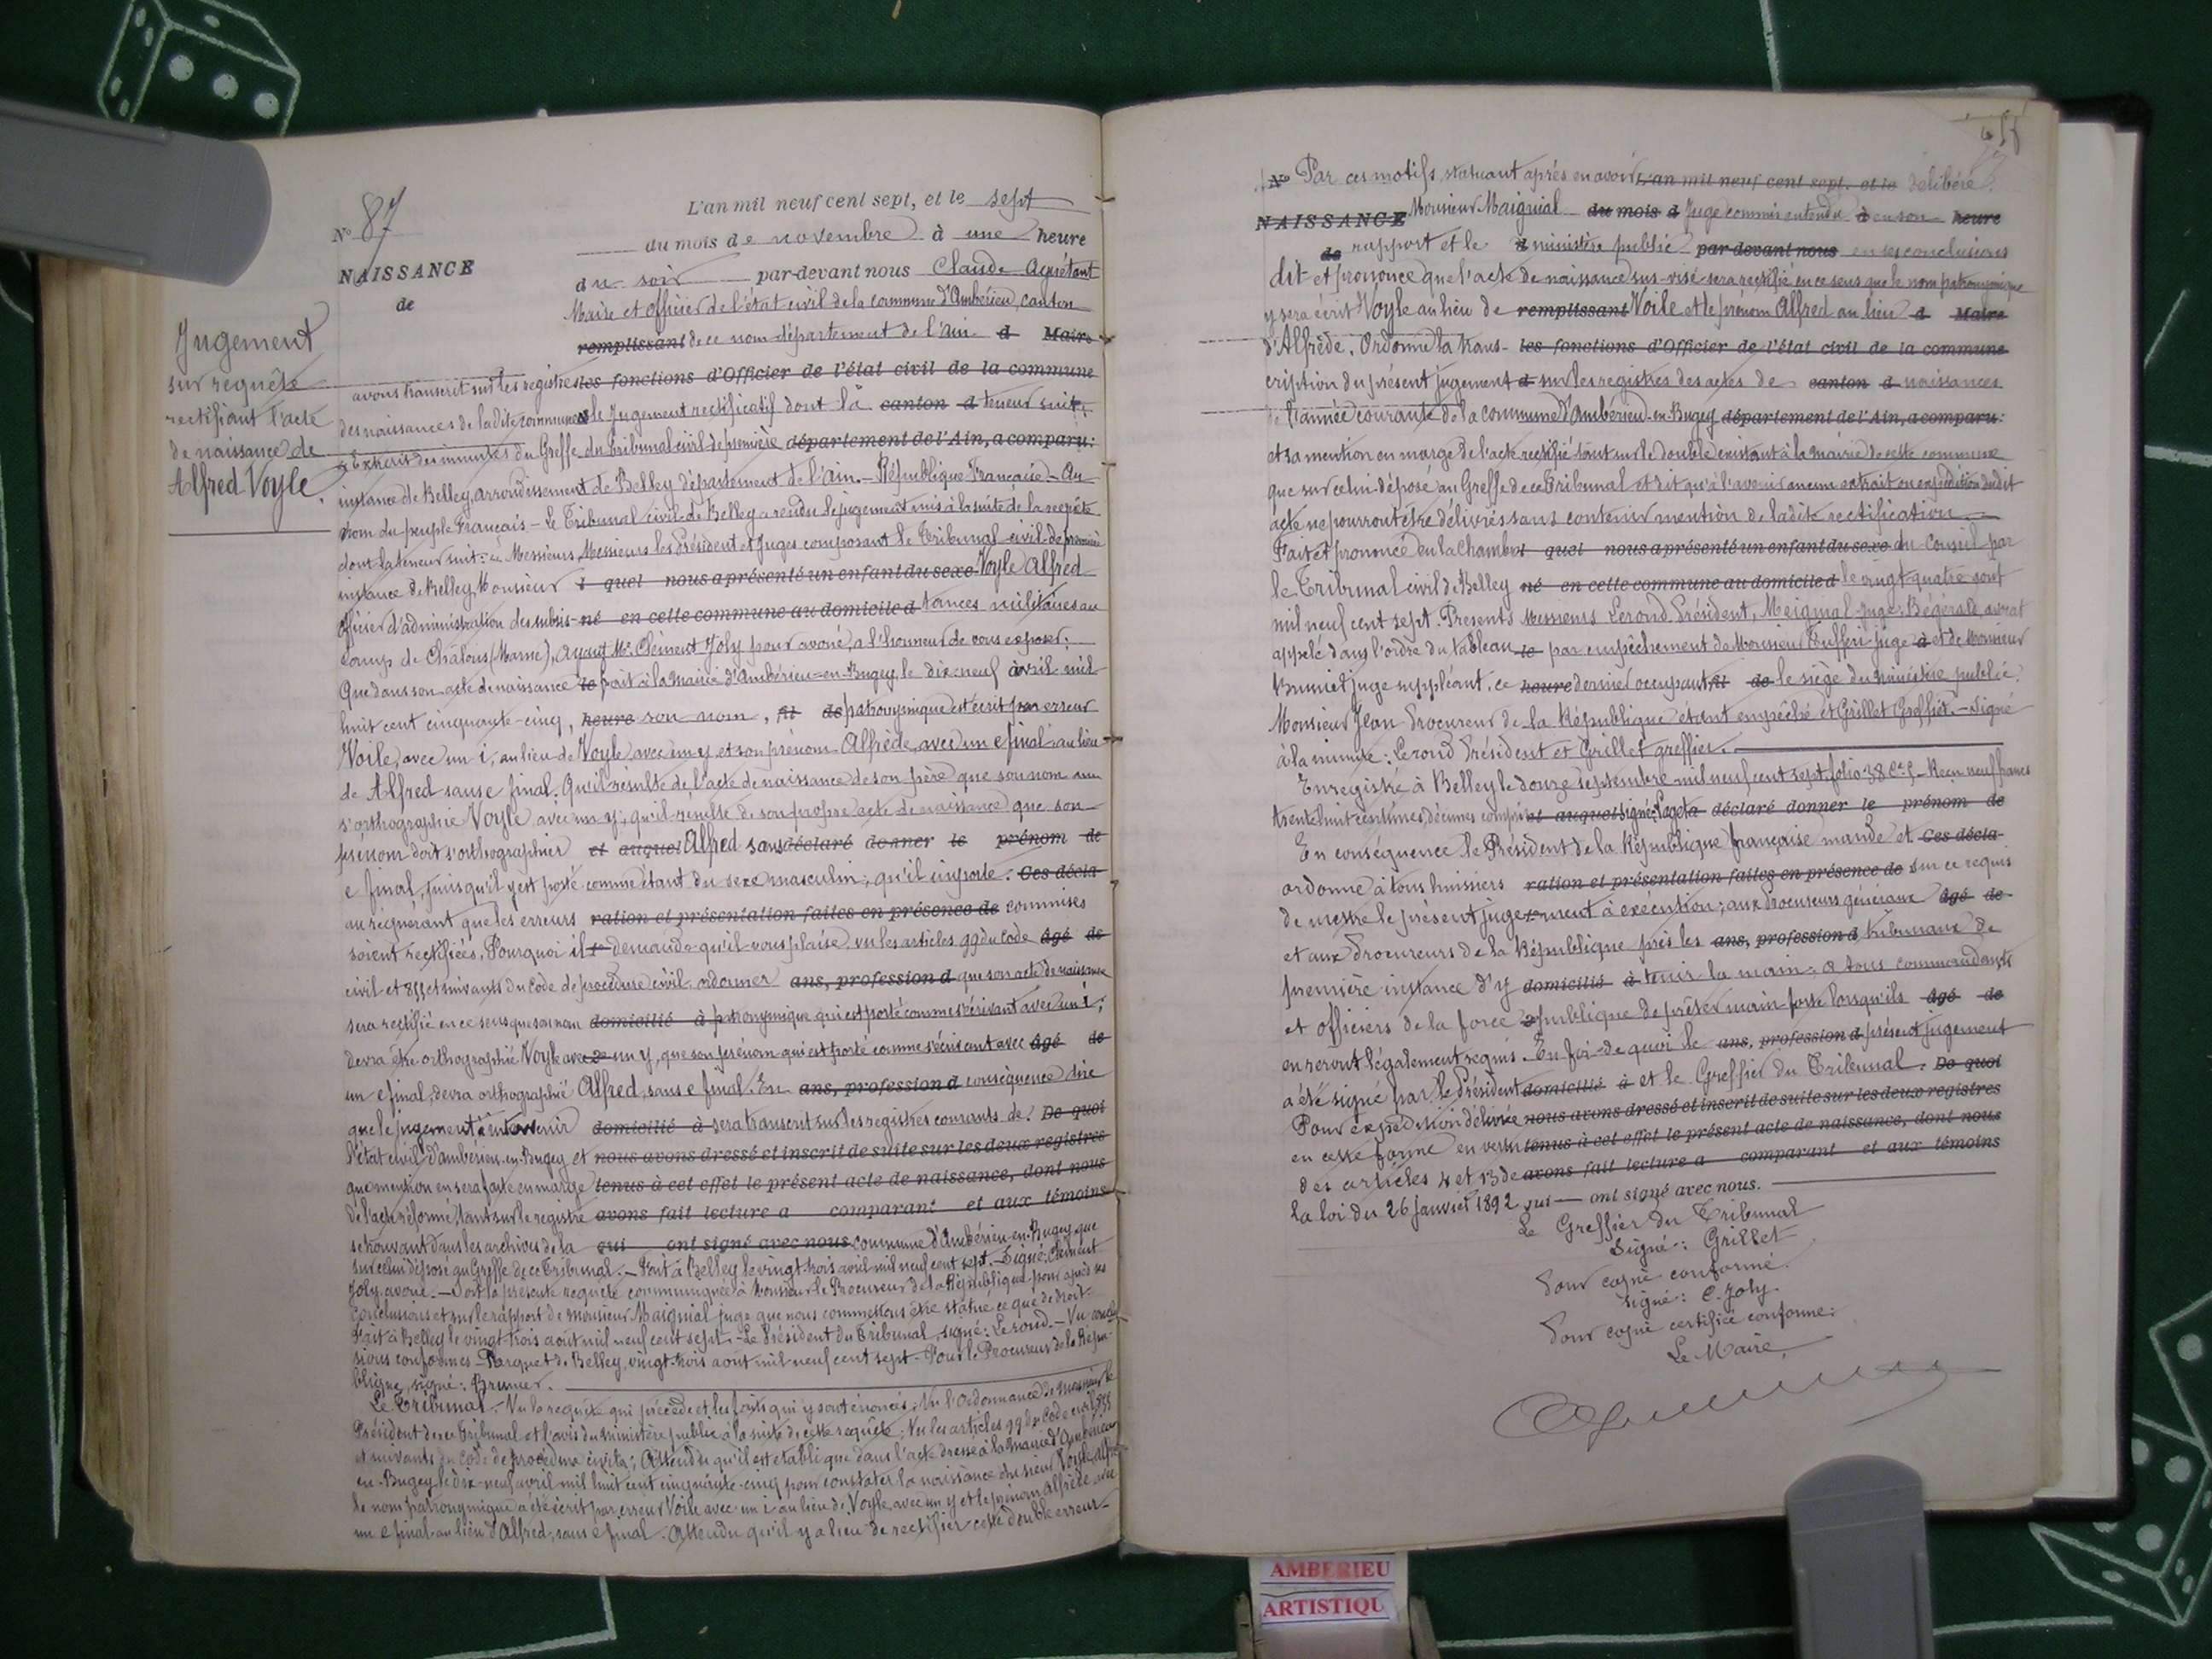 N° 87
NAISSANCE
de
Jugement
sur requête
rectifiant l'acte
de naissance de
Alfred Voyle.
L'an mil neuf cent sept, et le sept
du mois de novembre à une heure
du soir par-devant nous Claude
Maire et officier de l'état civil de la commune d'Ambérieu, canton
remplissant de ce nom département de l'Ain d Maire
avons transcrit sur les registres les fonctions d'Officier de l'état civil de la commune
des naissances de ladite commune le Jugement rectificatif dont la canton d teneur suit:
Extrait des minutes du Greffe du Tribunal civil de première département de l'Ain, a comparu:
instance de Belley, arrondissement de Belley département de l'Ain. - République Française - Au
nom du peuple Français - Le Tribunal civil de Belley a rendu le jugement mis à la suite de la requête
dont la teneur suit: à Messieurs, Messieurs les Président et Juges composant le Tribunal civil de première
instance de Belley, Monsieur l quel nous a présenté un enfant du sexe Voyle Alfred
officier d'administration des subsis- né en cette commune au domicile d tances militaires au
camp de Châlons (Marne), ayant Me Clément Joly pour avoué, a l'honneur de vous exposer:
Que dans son acte de naissance le fait à la mairie d'Ambérieu-en-Bugey, le dix-neuf avril mil
huit cent cinquante-cinq, heure son nom, fil de patronymique est écrit par erreur
Voile, avec un i, au lieu de Voyle avec un y et son prénom Alfrède, avec un e final au lieu
de Alfred sans e final. Qu'il résulte de l'acte de naissance de son père que son nom
s'orthographie Voyle avec un y; qu'il résulte de son propre acte de naissance que son
prénom doit s'orthographier et auquel Alfred sans déclaré donner le prénom de
e final, puisqu'il y est porté comme étant du sexe masculin; qu'il importe. Ces décla-
au requérant que les erreurs ration et présentation faites en présence de commises
soient rectifiées. Pourquoi il demande qu'il vous plaise vu les articles 99 du Code âgé de
civil et 855 et suivants du Code de procédure civil, ordonner ans, profession d que son acte de naissance
sera rectifié en ce sens que son nom domicilié à patronymique qui est porté comme s'écrivant avec un i,
devra être orthographié Voyle avec un y, que son prénom qui est porté comme s'écrivant avec âgé de
un e final, devra orthographié Alfred, sans e final. En ans, profession d conséquence dire
que le jugement à intervenir domicilié à sera transcrit sur les registres courants de. De quoi
l'état civil d'Ambérieu-en-Bugey et nous avons dressé et inscrit de suite sur les deux registres
que mention en sera faite en marge tenus à cet effet le présent acte de naissance, dont nous
de l'acte réformé, tant sur le registre avons fait lecture a comparant et aux témoins
se trouvant dans les archives de la qui ont signé avec nous commune d'Ambérieu-en-Bugey que
sur celui déposé au Greffe de ce Tribunal. - Fait à Belley le vingt-trois avril mil neuf cent sept. - Signé: Clément
Joly, avoué. - Soit la présente requête communiquée à Monsieur le Procureur de la République pour après ses
conclusions et sur le rapport de Monsieur Maignial juge que nous commettons être statué ce que de droit.
Fait à Belley le vingt trois août mil neuf cent sept. - Le Président du Tribunal, signé: Lerond. - Vu conclu-
sions conformes - Parquet de Belley, vingt-trois août mil neuf cent sept. Pour le Procureur de la Répu-
blique, signé: Brunet.
Le Tribunal. - Vu la requête qui précède et les faits qui y sont énoncés; Vu l'ordonnance de Monsieur le
Président de ce Tribunal et l'avis du ministère public à la suite de cette requête; Vu les articles 99 du Code civil, 855
et suivants du Code de procédure civile; Attendu qu'il est établi que dans l'acte dressé à la mairie d'Ambérieu
en-Bugey le dix-neuf avril mil huit cent cinquante-cinq pour constater la naissance du sieur Voyle Alfred
le nom patronymique a été écrit par erreur Voile avec un i au lieu de Voyle, avec un y et le prénom Alfrède avec
un e final au lieu d'Alfred, sans e final. Attendu qu'il y a lieu de rectifier cette double erreur.
N° Par ces motifs, statuant après en avoir L'an mil neuf cent sept, et le délibéré.
NAISSANCE Monsieur Maignial du mois d Juge commis entendu à en son heure
de rapport et le ministère public par-devant nous en ses conclusions
dit et prononce que l'acte de naissance sus-visé sera rectifié en ce sens que le nom patronymique
y sera écrit Voyle au lieu de remplissant Voile et le prénom Alfred au lieu d Maire
d'Alfrède. Ordonne la trans- les fonctions d'Officier de l'état civil de la commune
cription du présent jugement d sur les registres des actes de canton d naissances
de l'année courante de la commune d'Ambérieu-en-Bugey département de l'Ain, a comparu:
et sa mention en marge de l'acte rectifié tant sur le double existant à la mairie de cette commune
que sur celui déposé au Greffe de ce Tribunal et dit qu'à l'avenir aucun extrait ou expédition dudit
acte ne pourront être délivrés sans contenir mention de ladite rectification.
Fait et prononcé en la Chambre l quel nous a présenté un enfant du sexe du Conseil par
le Tribunal civil de Belley né en cette commune au domicile d le vingt-quatre août
mil neuf cent sept. Présents Messieurs Lerond, Président, Maignial juge; Bégérald, avocat
appelé dans l'ordre du tableau le par empêchement de Monsieur juge à et de Monsieur
Brunet juge suppléant, ce heure dernier occupant fil de le siège du ministère public.
Monsieur Jean Procureur de la République étant empêché et Grillet Greffier. - Signé
à la minute: Lerond Président et Grillet greffier.
Enregistré à Belley le douze septembre mil neuf cent sept folio 38 Ce 5 - Reçu neuf francs
trente huit centimes, décimes compris et auquel signé: déclaré donner le prénom de
En conséquence le Président de la République française mande et Ces décla-
ordonne à tous huissiers ration et présentation faites en présence de sur ce requis
de mettre le présent jugement à exécution; aux Procureurs généraux âgé de
et aux Procureurs de la République près les ans, profession d tribunaux de
première instance d'y domicilié à tenir la main; à tous commandants
et officiers de la force publique de prêter main forte lorsqu'ils âgé de
en seront légalement requis. En foi de quoi le ans, profession d présent jugement
a été signé par le Président domicilié à et le Greffier du Tribunal. De quoi
Pour expédition délivrée nous avons dressé et inscrit de suite sur les deux registres
en cette forme en vertu tenus à cet effet le présent acte de naissance, dont nous
des articles 4 et 13 de avons fait lecture a comparant et aux témoins
la loi du 26 janvier 1892 qui ont signé avec nous.
Le Greffier du Tribunal
Signé: Grillet
Pour copie conforme.
Signé: C. Joly.
Pour copie certifiée conforme:
Le Maire,
AMBERIEU
ARTISTIQU